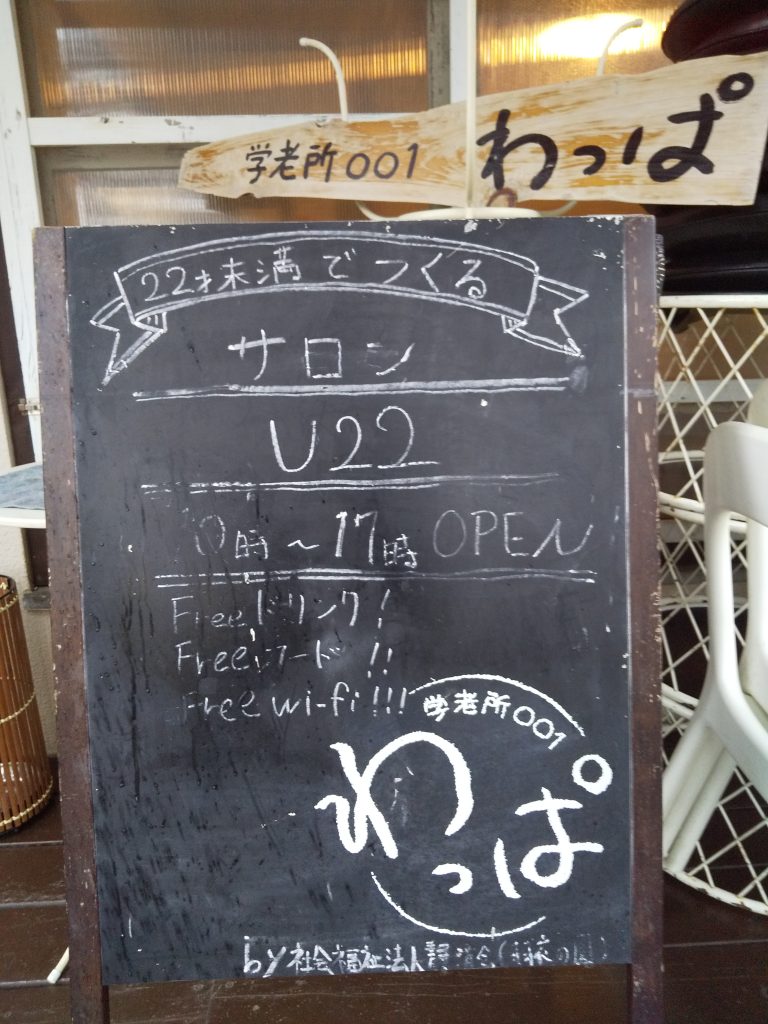 学老所001 わっぱ
22才未満でつくる
サロン
U22
10時～17時 OPEN
Freeドリンク!
Freeフード!!
Free wi-fi!!!
学老所001
わっぱ
by社会福祉法人